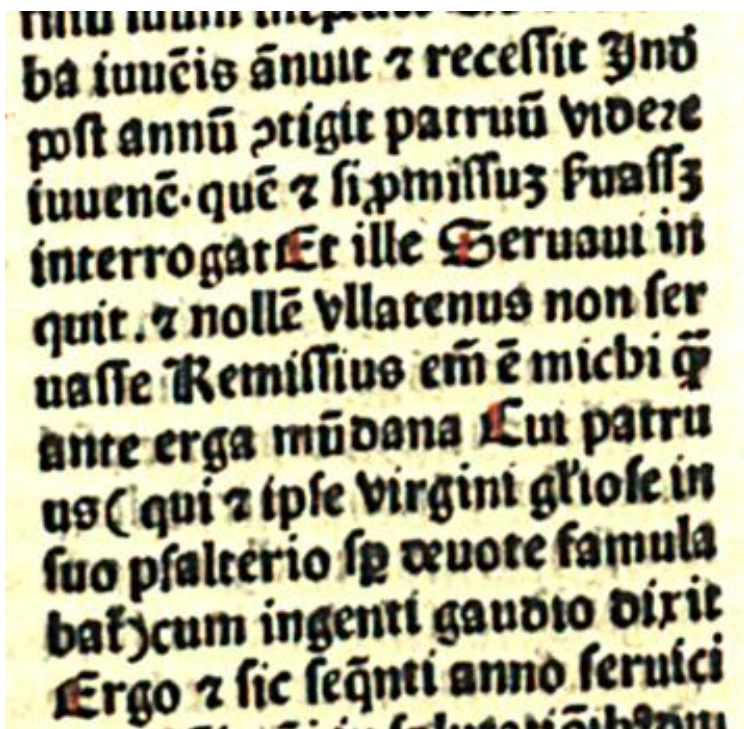 ba iuuēis ānuit ⁊ receſſit Ind̄
poſt annū ꝯtigit patruū videꝛe
iuuenē. quē ⁊ ſi ꝓmiſſuꝫ ẜuaſſꝫ
interrogat Et ille Seruaui in
quit. ⁊ nollē vllatenus non ſer
uaſſe Remiſſius em̄ ē michi qͣꝫ
ante erga mūdana Cui patru
us( qui ⁊ ipſe virgini gl̄ioſe in
ſuo pſalterio ſꝑ deuote famula
bat̄)cum ingenti gaudio dixit
Ergo ⁊ ſic ſeq̄nti anno ſeruici